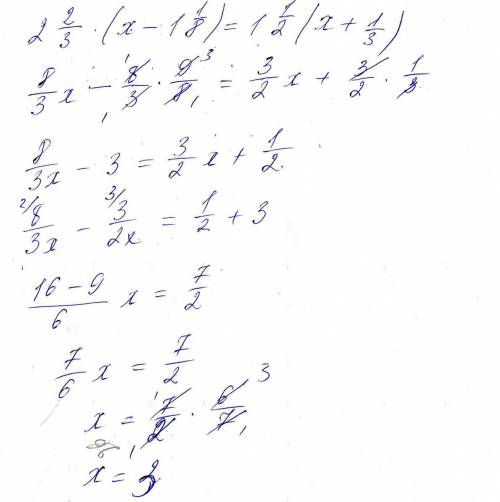 2 2/3 · (x − 1 1/8) = 1 1/2 (x + 1/3)
8/3 x − 8/3 · 9/8 = 3/2 x + 3/2 · 1/3
8/3x − 3 = 3/2 x + 1/2.
2/ 8/3x − 3/ 3/2x = 1/2 + 3
16 − 9/6 x = 7/2
7/6 x = 7/2
x = 7/2 · 6/7
x = 3